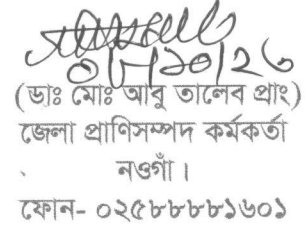 ০৮/১০/২৩
(ডাঃ মোঃ আবু তালেব প্রাং)
জেলা প্রাণিসম্পদ কর্মকর্তা
নওগাঁ।
ফোন- ০২৫৮৮৮৮১৬০১